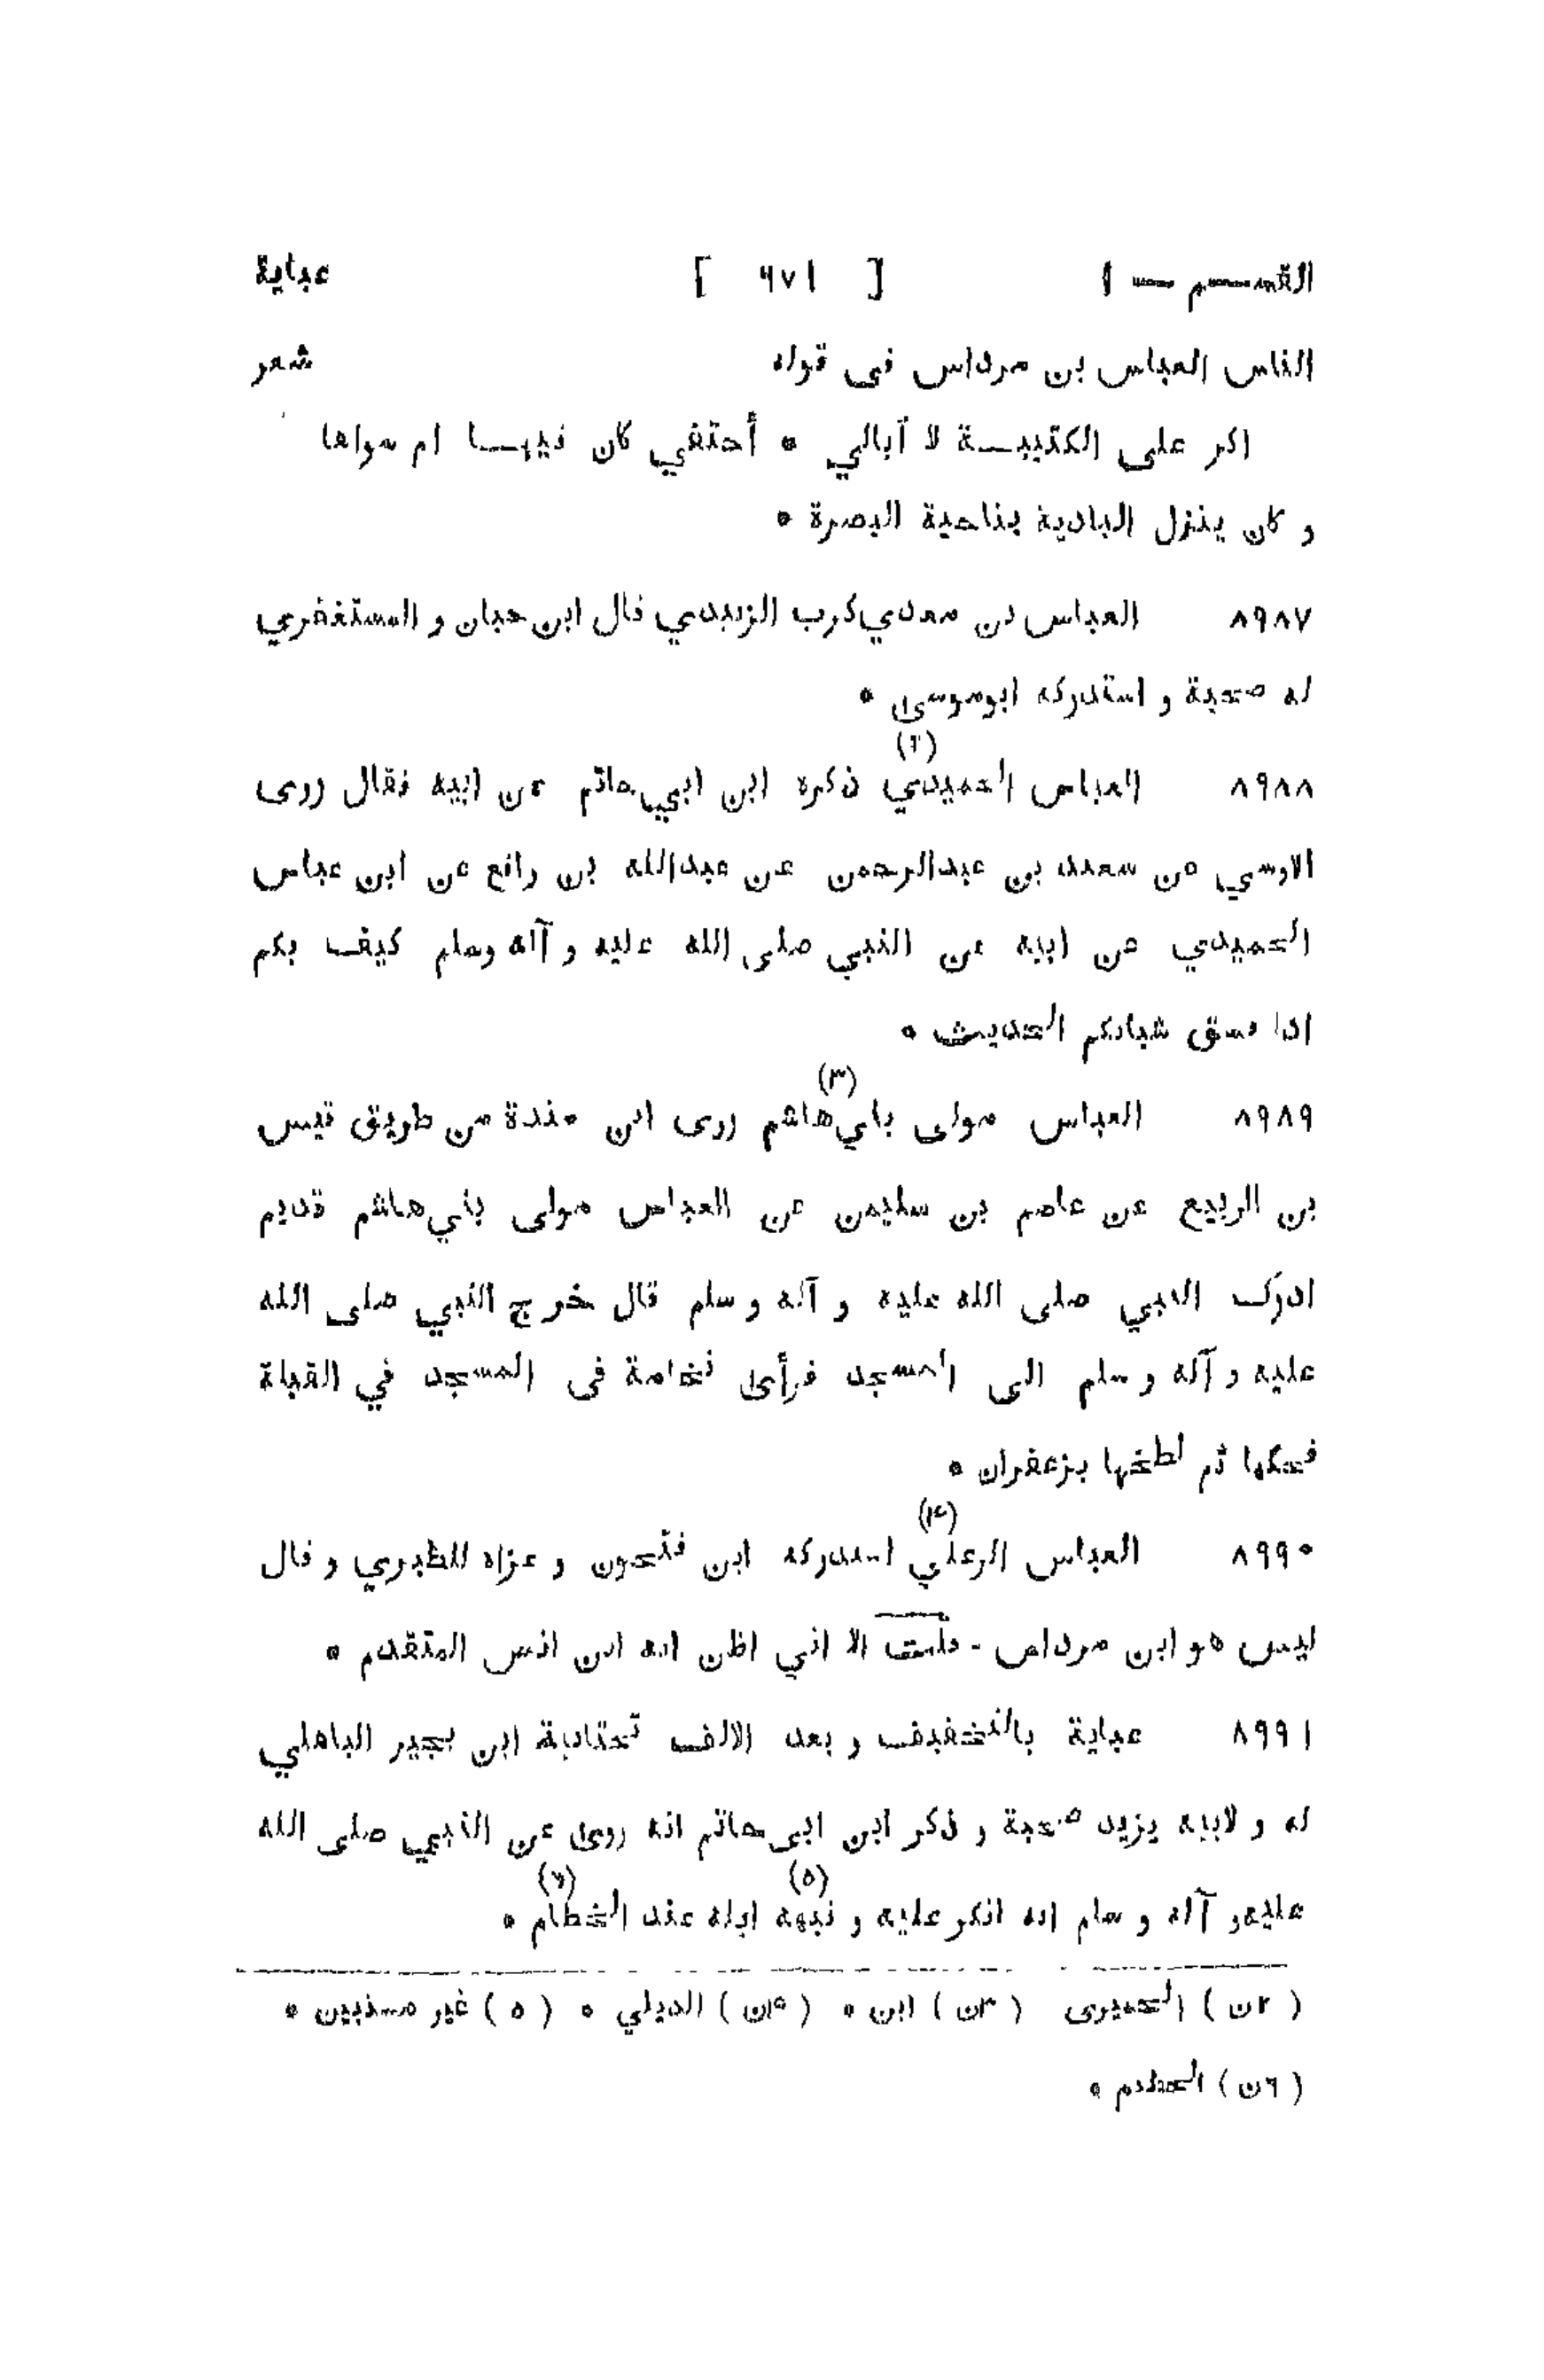 القسم — ١ [ ٦٧١ ] عباية
الناس العباس بن مرداس في قوله شعر
اكر على الكتيبة لا أبالي * أحتفي كان فيها ام سواها
و كان ينزل البادية بناحية البصرة *
٨٩٨٧ العباس بن معدي كرب الزبيدي قال ابن حبان و المستغفري
له صحبة و استدركه ابو موسى *
٨٩٨٨ العباس الحميدي (٢) ذكره ابن ابي حاتم عن ابيه فقال روى
الاوسي عن سعيد بن عبدالرحمن عن عبدالله بن رافع عن ابن عباس
الحميدي عن ابيه عن النبي صلى الله عليه و آله وسلم كيف بكم
اذا فسق شبانكم الحديث *
٨٩٨٩ العباس مولى بني هاشم (٣) روى ابن مندة من طريق قيس
بن الربيع عن عاصم بن سليمن عن العباس مولى بني هاشم قديم
ادرك النبي صلى الله عليه و آله و سلم قال خرج النبي صلى الله
عليه و آله و سلم الى المسجد فرأى نخامة في المسجد في القبلة
فحكها ثم لطخها بزعفران *
٨٩٩٠ العباس الرعلي (۴) استدركه ابن فتحون و عزاه للطبري و قال
ليس هو ابن مرداس - قلت الا اني اظن انه ابن انس المتقدم *
٨٩٩١ عباية بالتخفيف و بعد الالف تحتانية ابن بجير الباهلي
له و لابيه يزيد صحبة و ذكر ابن ابى حاتم انه روى عن النبي صلى الله
عليه و آله و سلم انه انكر عليه و نبهه (٥) ابله عند الخطام (٦) *
( ٢ن ) الحميرى ( ٣ن ) ابن * ( ۴ن ) الديلي * ( ٥ ) غير مستبين *
( ٦ن ) الحطم *